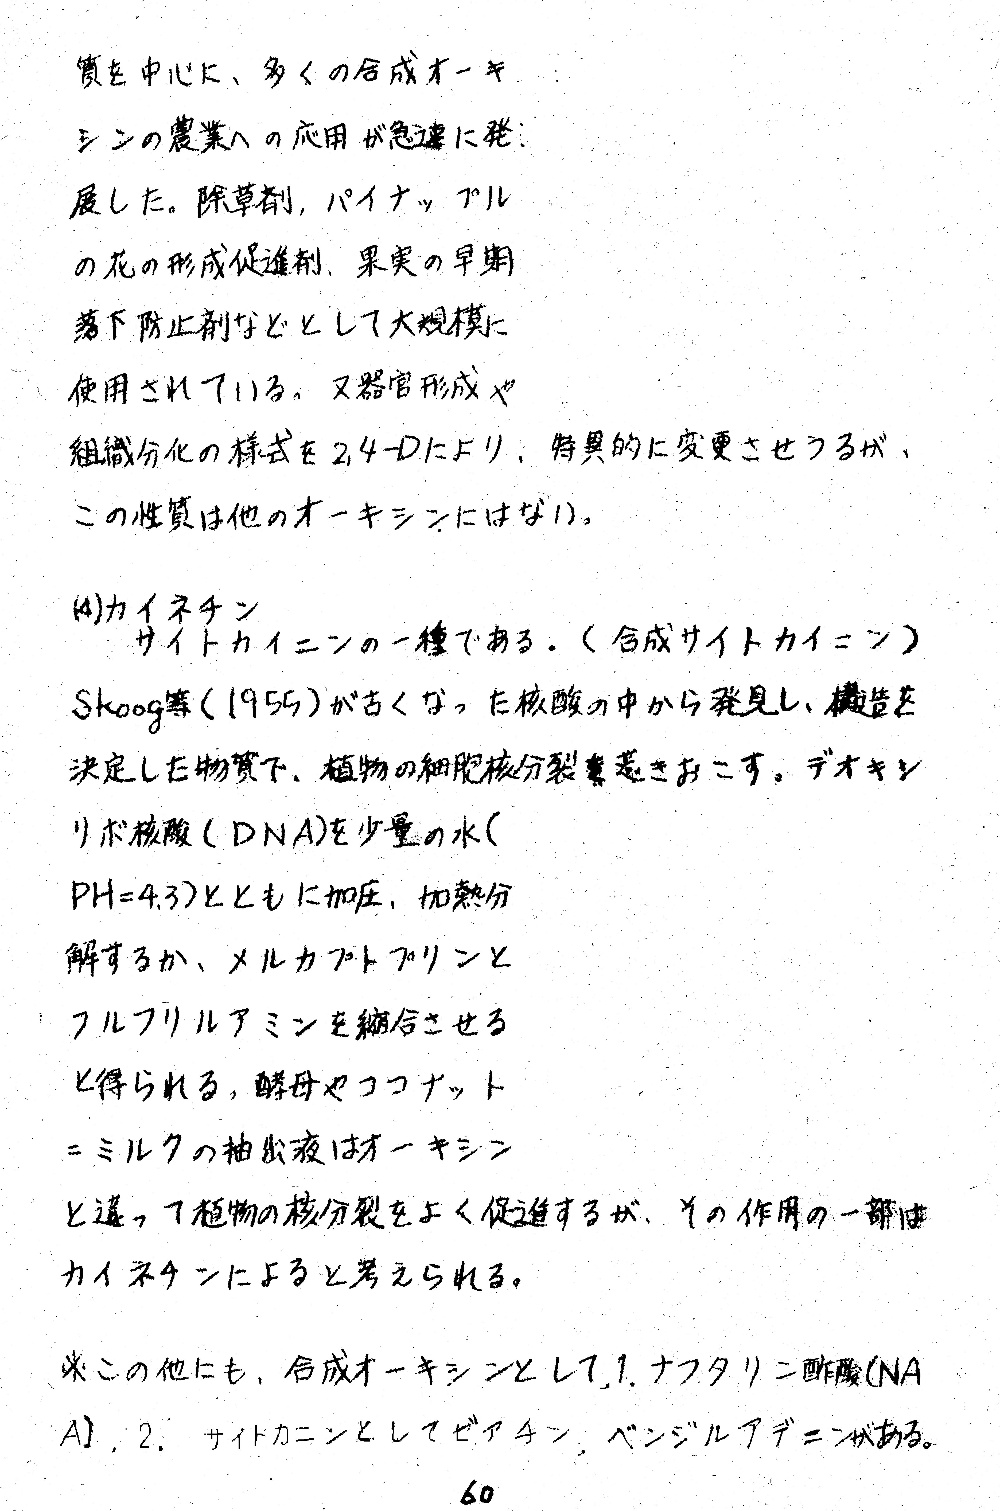 質を中心に、多くの合成オーキ
シンの農業への応用が急速に発
展した。除草剤, パイナップル
の花の形成促進剤、果実の早期
落下防止剤などとして大規模に
使用されている。又器官形成や
組織分化の様式を2,4-Dにより、特異的に変更させうるが、
この性質は他のオーキシンにはない。
(4)カイネチン
サイトカイニンの一種である。(合成サイトカイニン)
Skoog等(1955)が古くなった核酸の中から発見し、構造を
決定した物質で、植物の細胞核分裂を惹きおこす。デオキシ
リボ核酸(DNA)を少量の水(
PH=4.3)とともに加圧、加熱分
解するか、メルカプトプリンと
フルフリルアミンを縮合させる
と得られる。酵母やココナット
=ミルクの抽出液はオーキシン
と違って植物の核分裂をよく促進するが、その作用の一部は
カイネチンによると考えられる。
※この他にも、合成オーキシンとして,1.ナフタリン酢酸(NA
A), 2. サイトカニンとしてゼアチン, ベンジルアデニンがある。
60